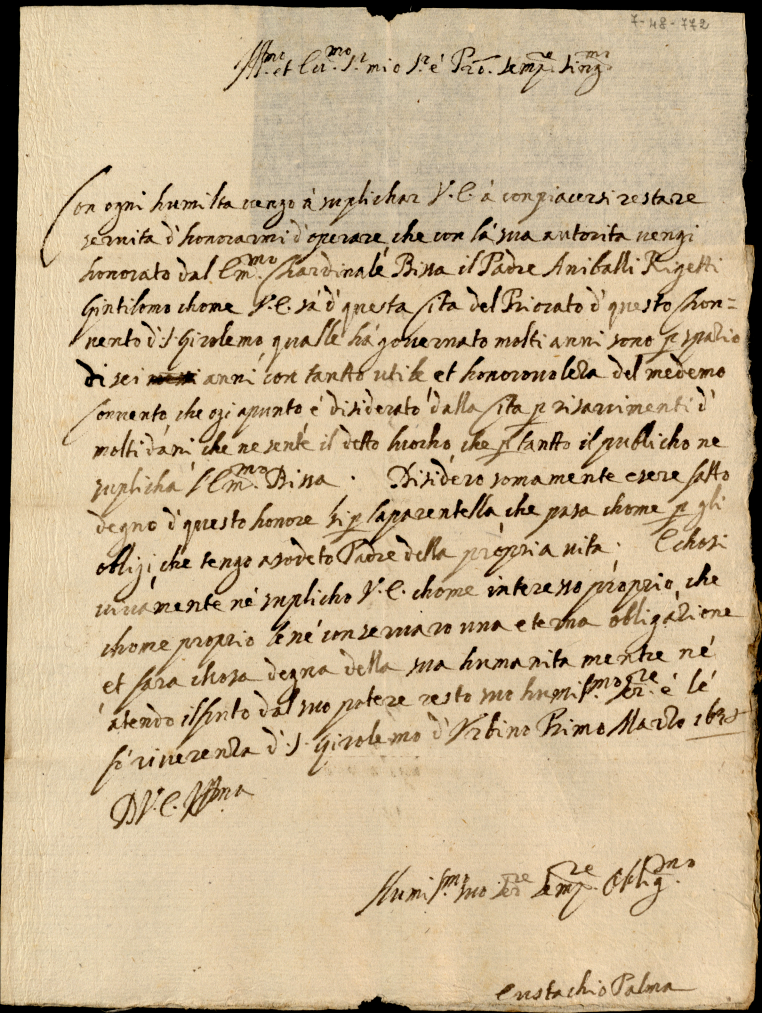 7-48-772
Ill.mo et Ecc.mo S.r mio S.r é Pro.n semp.re sing.mo
Con ogni humilta vengo á suplichar V. E. á conpiacersi restare
servita d'honorarmi d'operare, che con la sua autorita vengi
honorato dal Em.mo Chardinale Bissa il Padre Aniballi Rigetti
Gintilomo chome V. E. sá d'questa sita del Priorato d'questo Chon=
vento d' S. Girolemo qualle há governato molti anni sono p spazio
di sei anni con tantto utile et honorovoleza del medemo
Convento, che ogi apunto é disiderato dalla sita p risarvimenti d'
molti dani che ne sente il detto luocho, che p tantto il publicho ne
suplicha l'Em.mo Bissa. Disidero somamente esere fatto
degno d'questo honore si p la parentella che pasa chome p gli
obligi che tengo a sodeto Padre della propria vita. E chosi
vivamente né suplicho V. E. chome interesso proprio, che
chome proprio le né conservaro una eterna obligazione
et sara chosa degna della sua humanita mentre né
atendo il frutto dal suo potere resto suo humilis.mo ser.re é lé
fó riverenza d' S. Girolemo d'Urbino Primo Marzo
D V. E. Ill.ma
Humilis.mo suo ser.re semp.re oblig.mo
Eustachio Palma